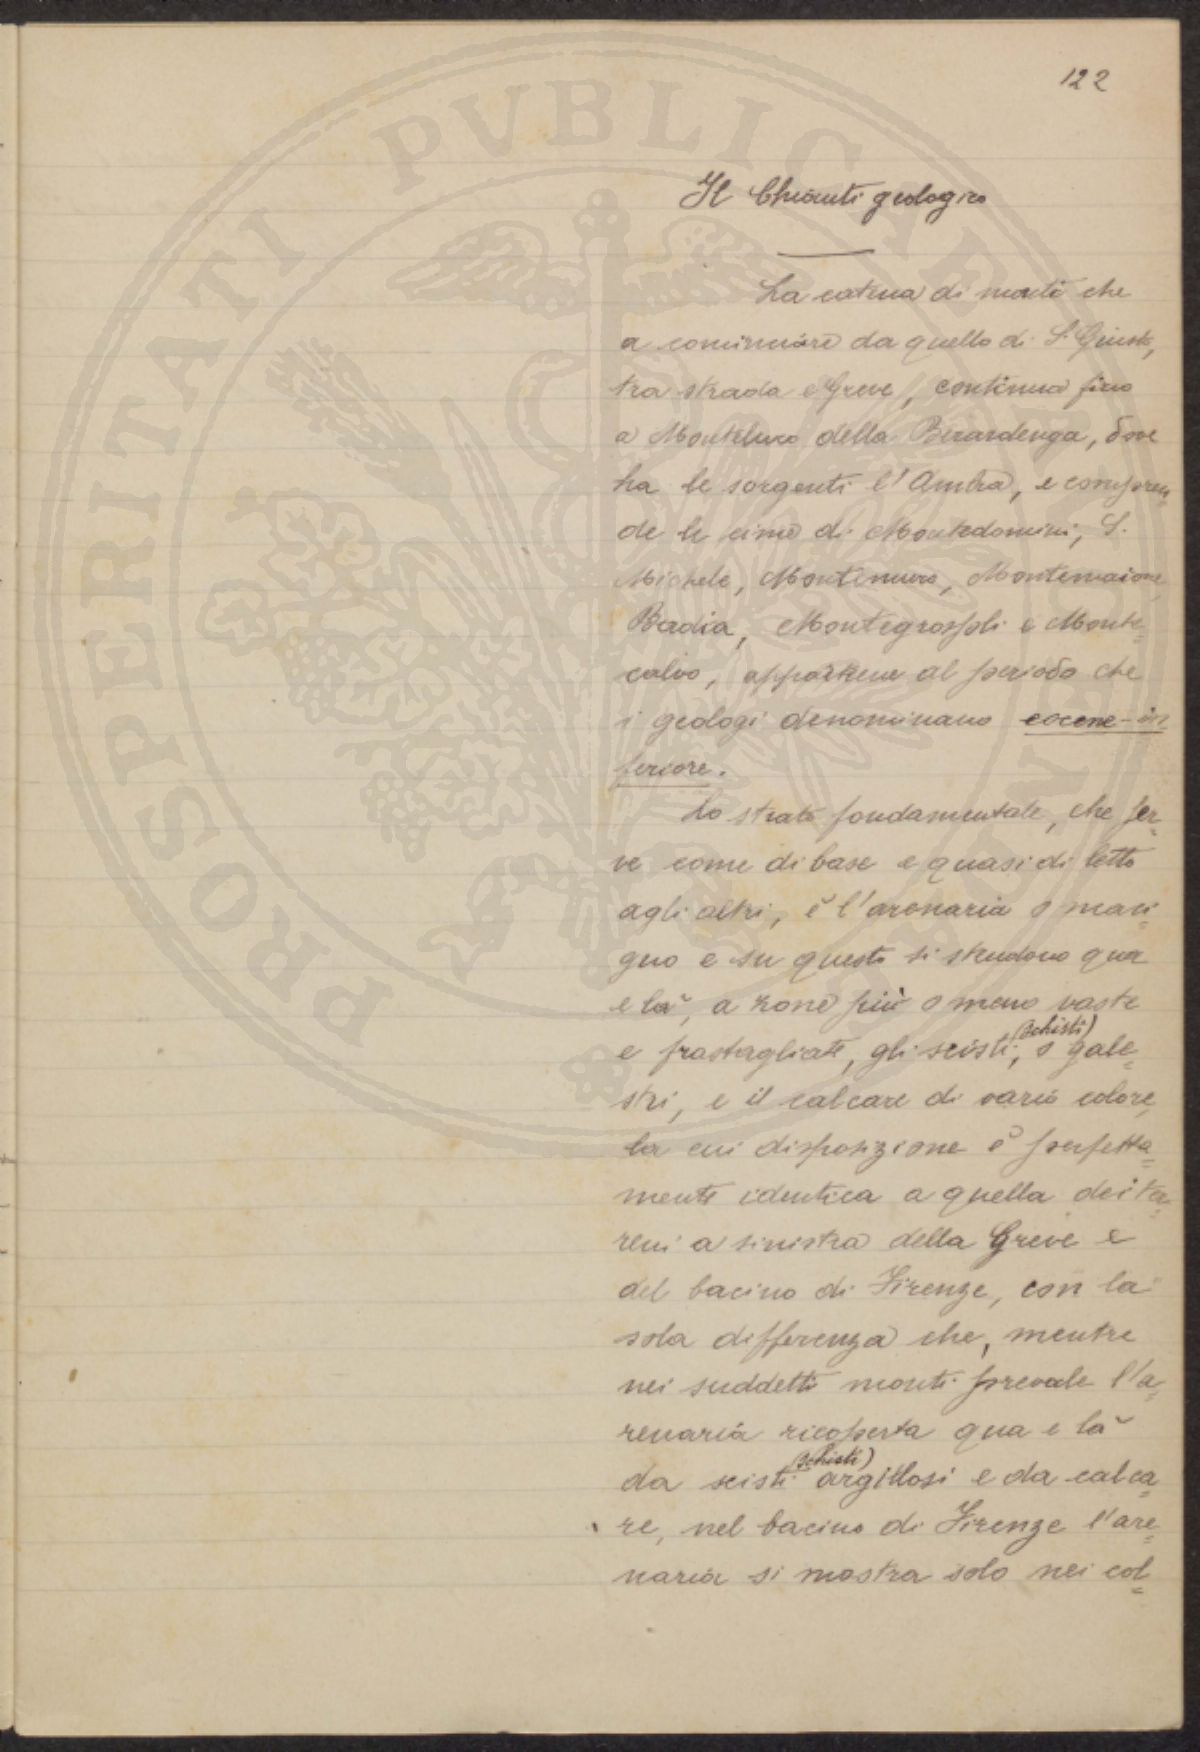 122
Il Chianti geologico
La catena di monti che
a cominciare da quello di S. Giusto,
tra strada e Greve, continua fino
a Monteluco della Berardenga, dove
ha le sorgenti l'Ambra, e compren=
de le cime di Montedomini, S.
Michele, Montemuro, Montemaione,
Badia, Montegrossoli e Monte=
calvo, appartiene al periodo che
i geologi denominano eocene-in
feriore.
Lo strato fondamentale, che ser=
ve come di base e quasi di letto
agli altri, è l'arenaria o maci=
gno e su questo si stendono qua
e là, a zone più o meno vaste
e frastagliate, gli scisti, (schisti) o gale=
stri, e il calcare di vario colore,
la cui disposizione è perfetta=
mente identica a quella dei ter=
reni a sinistra della Greve e
del bacino di Firenze, con la
sola differenza che, mentre
nei suddetti monti prevale l'a=
renaria ricoperta qua e là
da scisti (schisti) argillosi e da calca=
re, nel bacino di Firenze l'are=
naria si mostra solo nei col=
PROSPERITATI PUBLICAE AUGENDAE